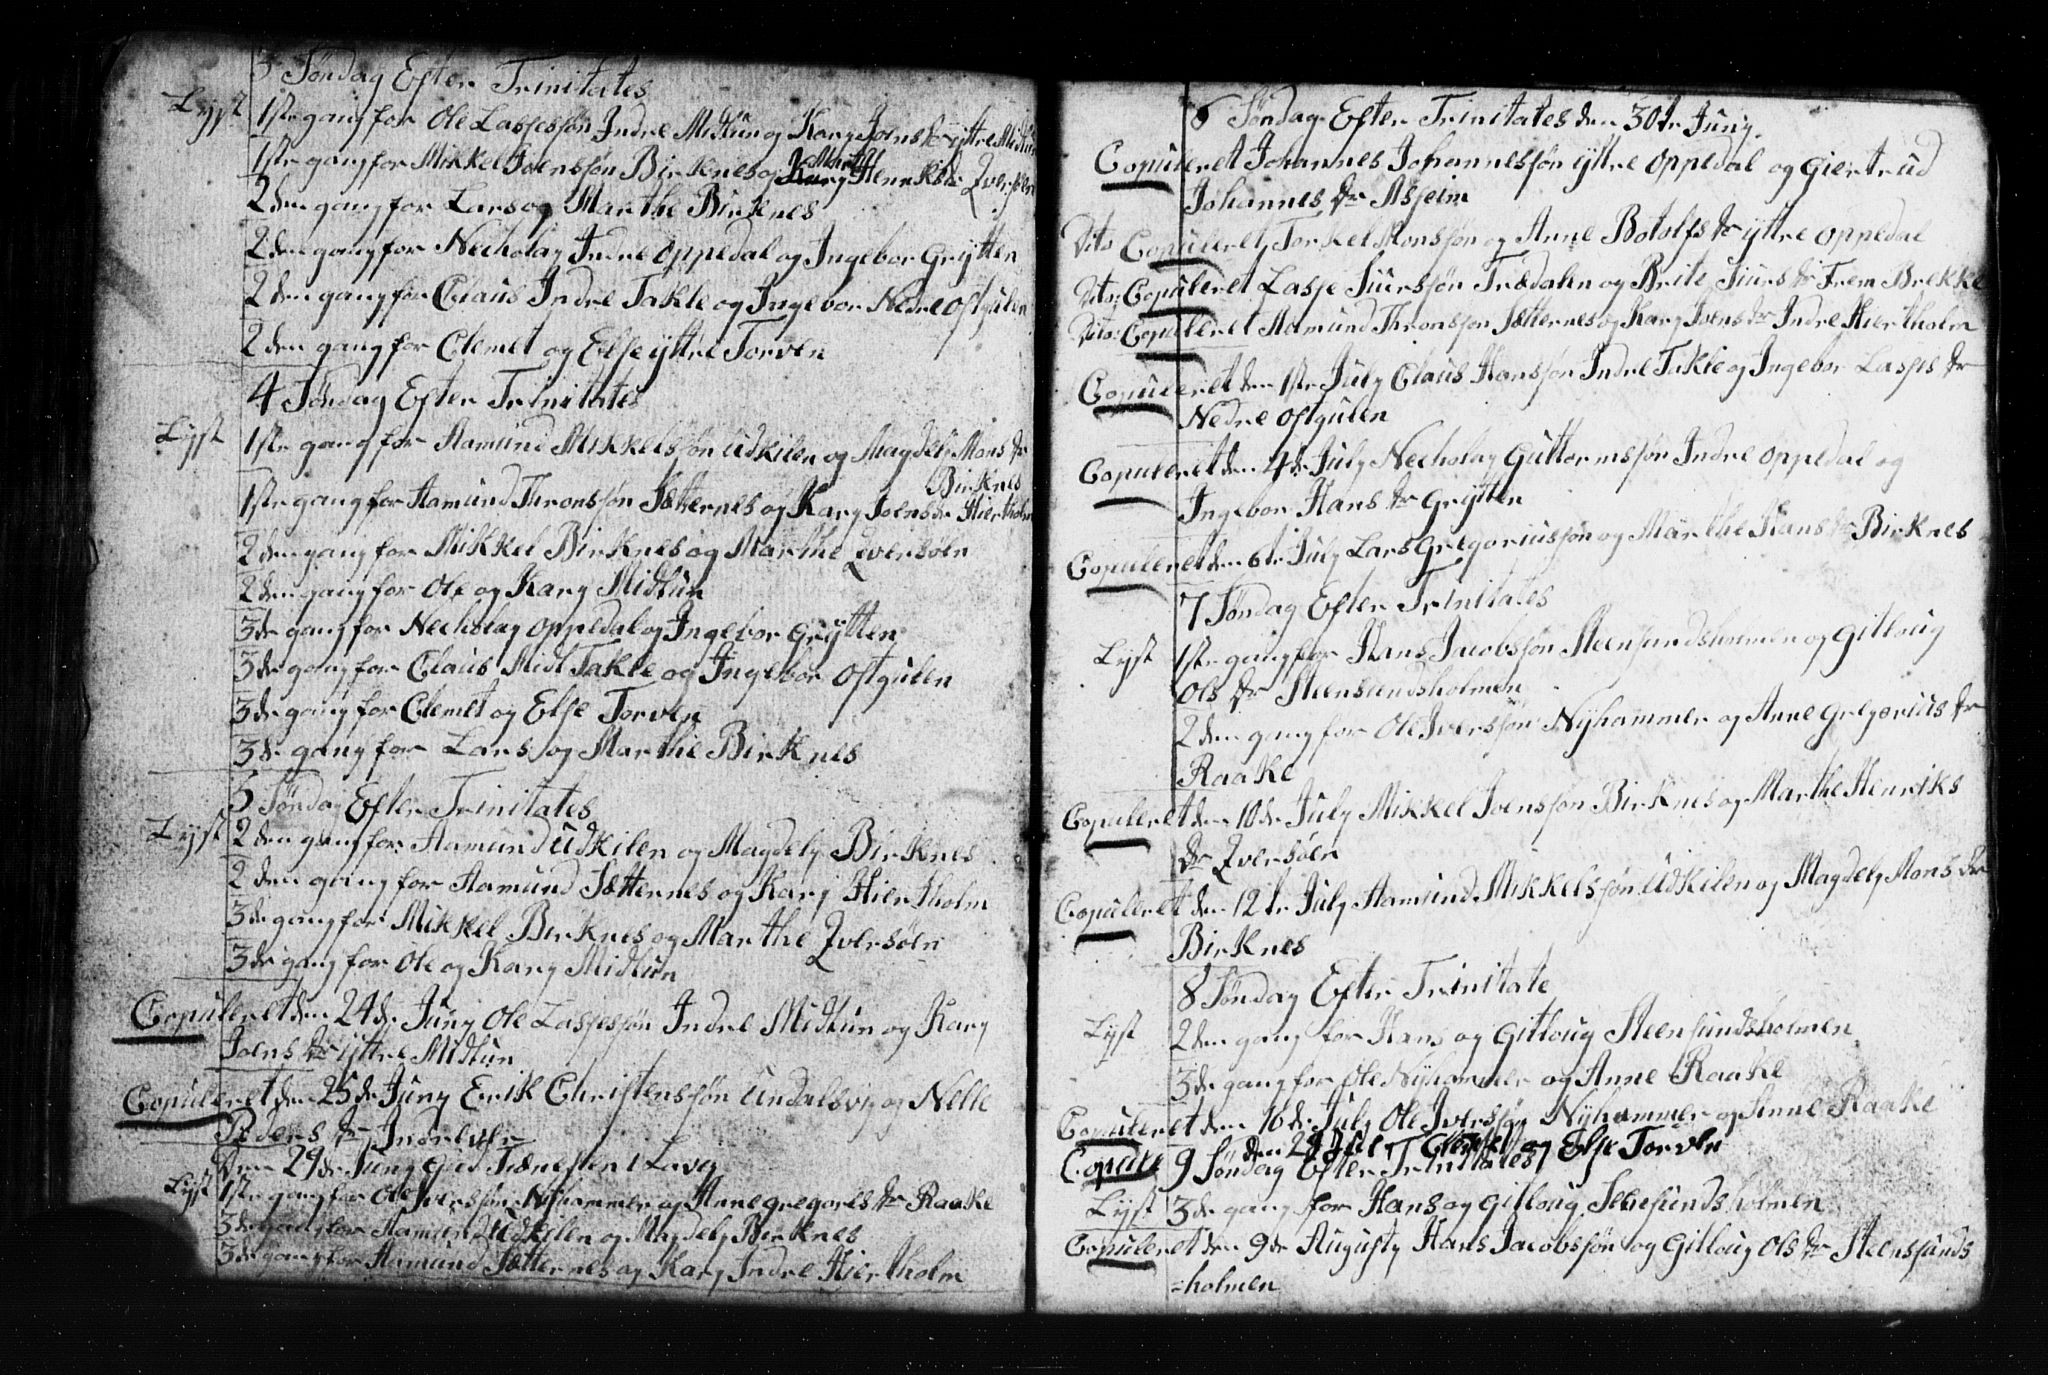 3 Søndag Efter Trinitates
Lyst 1ste gang for Ole Lassessøn Indre Midtun og Kary Joens dr yttre Midtun
1ste gang for Mikkel Joenssøn Birknes og Kary Marthe Henriks dr Qversøen
2den gang for Lars og Marthe Birknes
2den gang for Necholay Indre Oppedal og Ingebor Grytten
2den gang for Claus Indre Takle og Ingebor Nedre Ostgulen
2den gang for Clemet og Else yttre Torven
4 Søndag Efter Trinitates
Lyst 1ste gang for Aamund Mikkelssøn Udkilen og Magdely Mons dr
Birknes
1ste gang for Aamund Thronssøn Sætternes og Kary Joens dr Hiertholm
2den gang for Mikkel Birknes og Marthe Qversøen
2den gang for Ole og Kary Midtun
3de gang for Necholay Oppedal og Ingebor Grytten
3de gang for Claus Midt Takle og Ingebor Ostgulen
3de gang for Clemet og Else Torven
3de gang for Lars og Marthe Birknes
5 Søndag Efter Trinitates
Lyst 2den gang for Aamund Udkilen og Magdely Birknes
2den gang for Aamund Sætternes og Kary Hiertholm
3de gang for Mikkel Birknes og Marthe Qversøen
3de gang for Ole og Kary Midtun
Copuleret den 24de Juny Ole Lassessøn Indre Midtun og Kary
Joens dr yttre Midtun
Copuleret den 25de Juny Erik Christenssøn Undalsvig og Nelle
Peders dr
Den 29de Juny Gud Tienesten i Lavig
Lyst 1ste gang for Ole Iverssøn Nyhammer og Anne Gregores dr Raake
3de gang for Aamund Udkilen og Magdely Birknes
3de gang for Aamund Sætternes og Kary Indre Hiertholm
6 Søndag Efter Trinitates den 30te Juny
Copuleret Johannes Johannessøn yttre Oppedal og Giertrud
Johannes dr Asjeim
Dito Copuleret Torkel Monssøn og Anne Botolfs dr yttre Oppedal
Dito: Copuleret Lasse Siurssøn Trædalen og Brite Siurs dr Frem Brekke
Dito: Copuleret Aamund Thronssøn Sætternes og Kary Joens dr Indre Hiertholm
Copuleret den 1ste July Claus Hanssøn Indre Takle og Ingebor Lasses dr
Nedre Ostgulen
Copuleret den 4de July Necholay Guttormssøn Indre Oppedal og
Ingebor Hans dr Grytten
Copuleret den 6te July Lars Gregoriussøn og Marthe Hans dr Birknes
7 Søndag Efter Trinitates
Lyst 1ste gang for Hans Jacobssøn Steensundsholmen og Gitloug
Ols dr Steensundsholmen
2den gang for Ole Iverssøn Nyhammer og Anne Gregorius dr
Raake
Copuleret den 10de July Mikkel Joenssøn Birknes og Marthe Henriks
dr Qversøen
Copuleret den 12te July Aamund Mikkelssøn Udkilen og Magdely Mons dr
Birknes
8 Søndag Efter Trinitate
Lyst 2den gang for Hans og Gitloug Steensundsholmen
3de gang for Ole Nyhammer og Anne Raake
Copuleret den 16de July Ole Iverssøn Nyhammer og Anne Raake
Copule den 21 Juli Clemet og Else Torven
9 Søndag Efter Trinitates
Lyst 3de gang for Hans og Gitloug Stensundsholmen
Copuleret den 9de Augusty Hans Jacobssøn og Gitloug Ols dr Steenssunds
=holmen